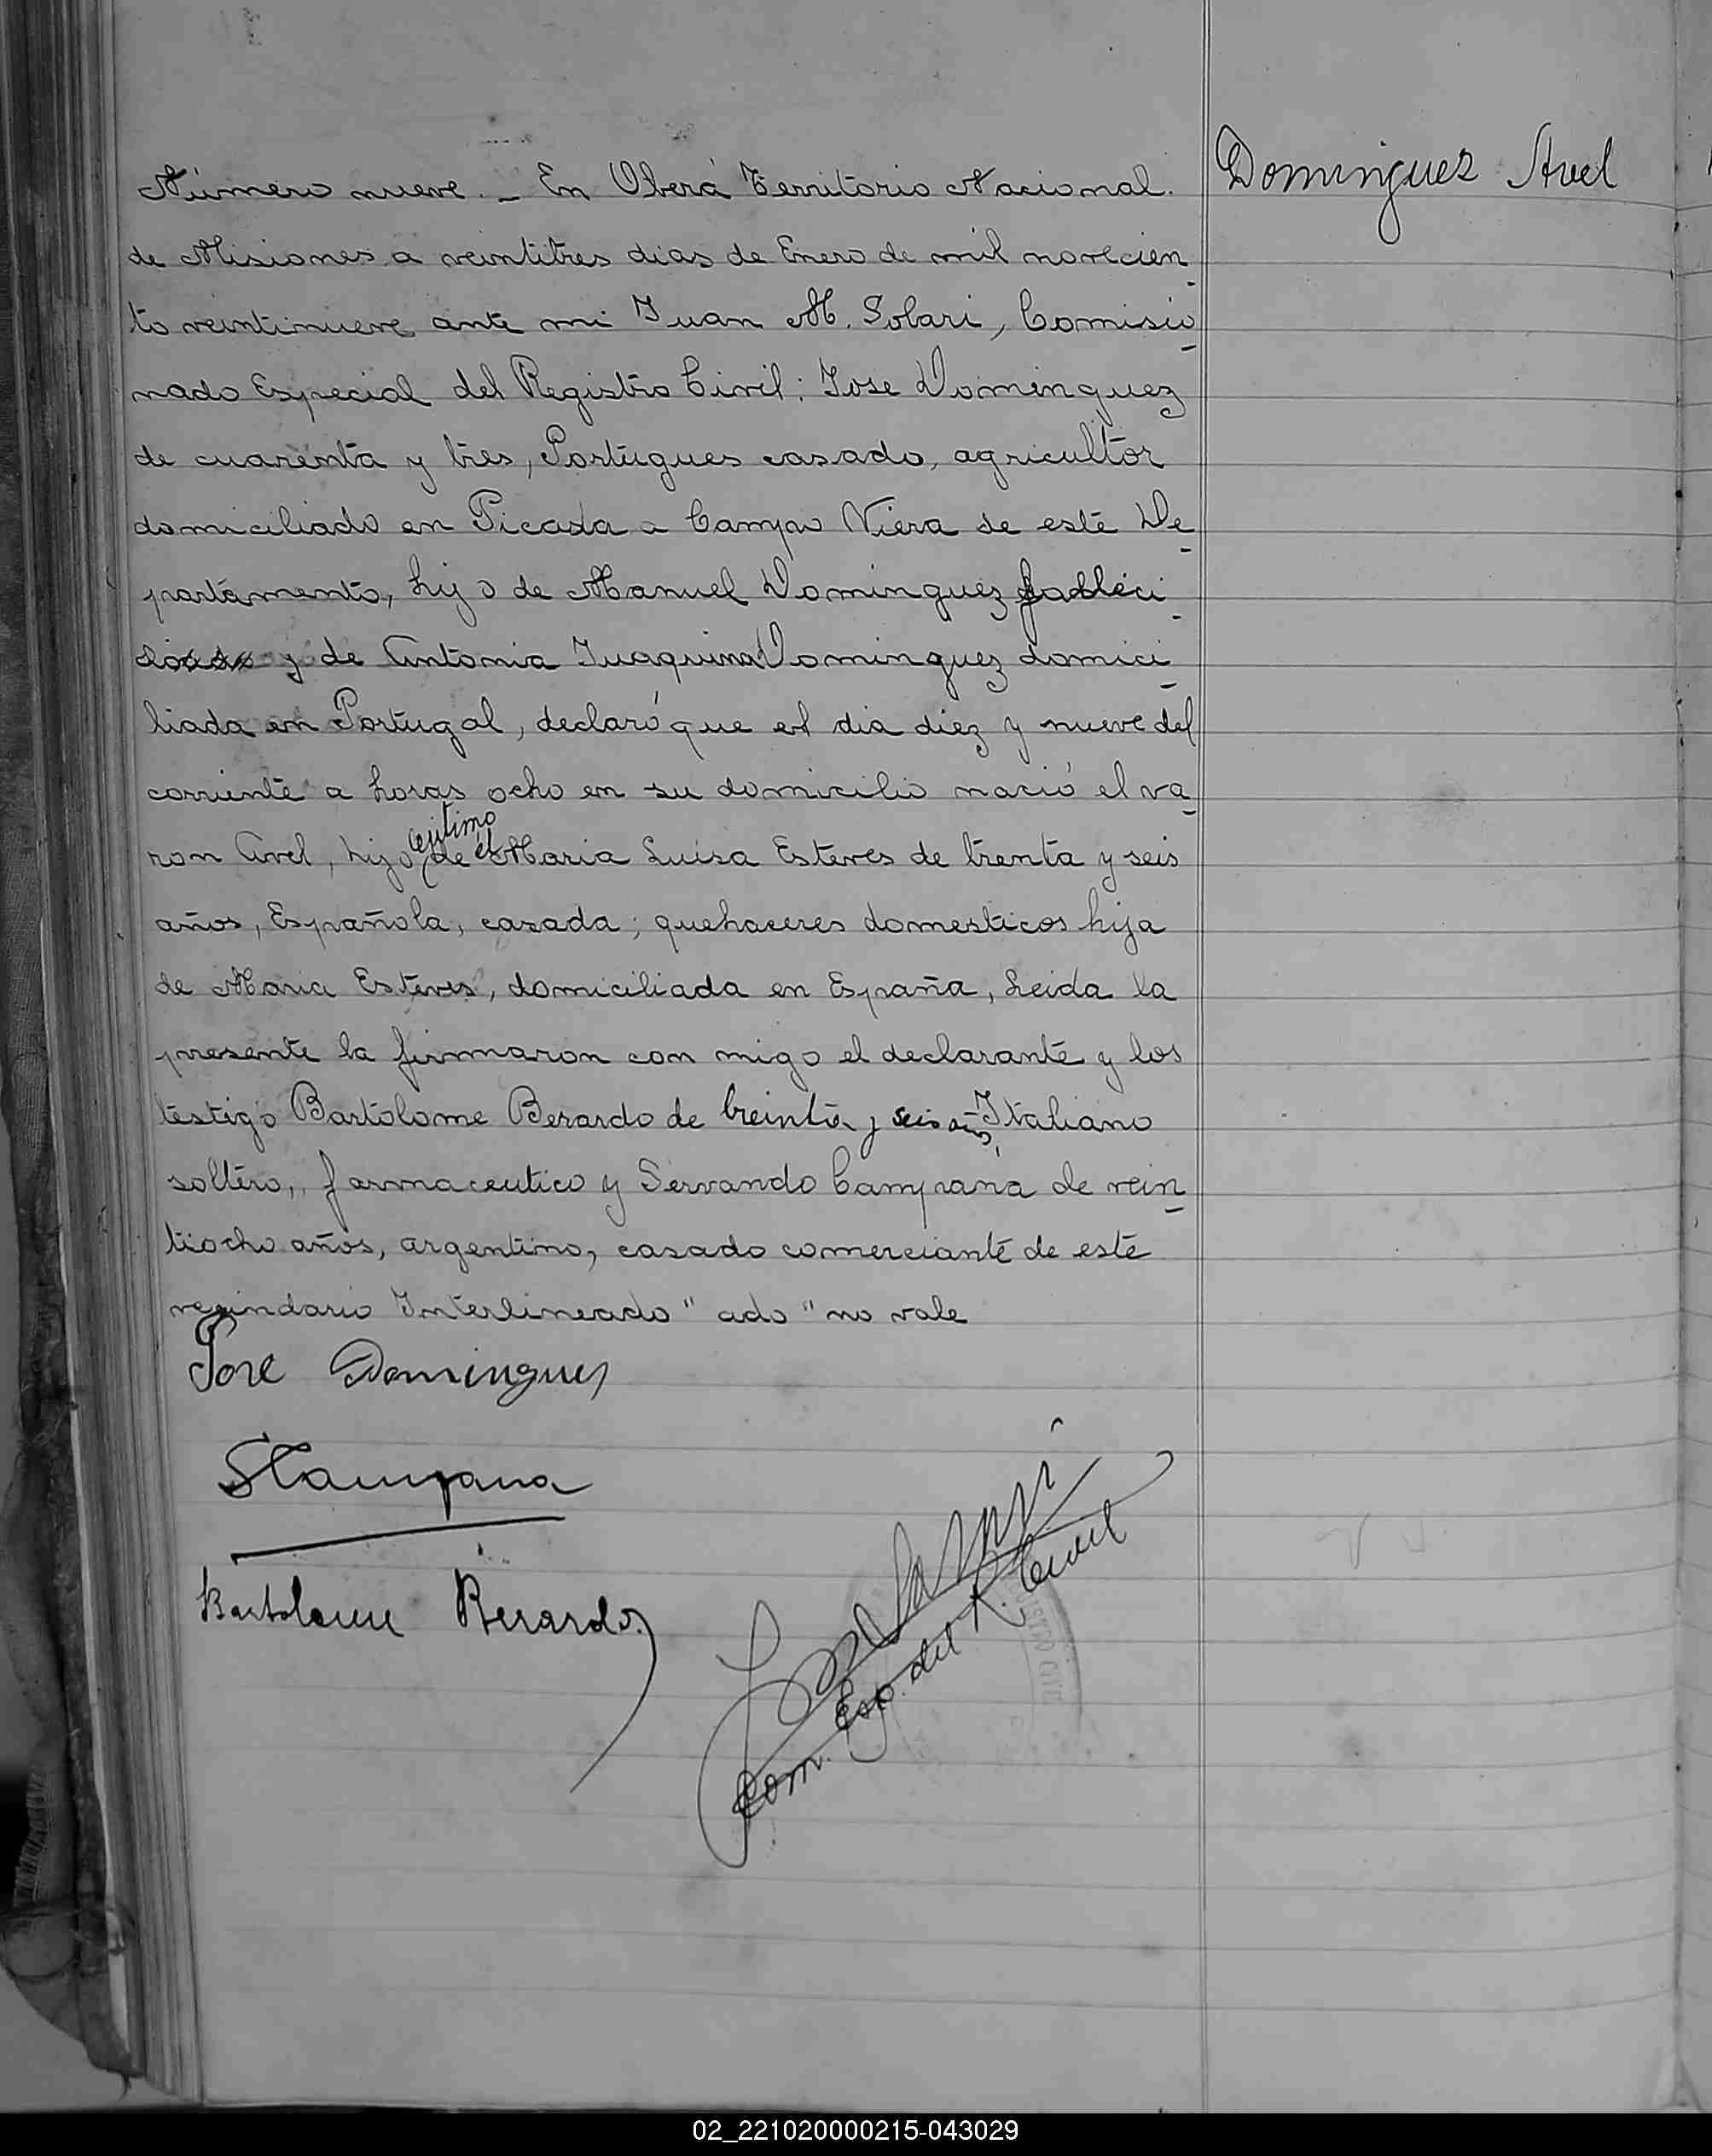 Domingues Avel
Número nueve. _ En Oberá Territorio Nacional.
de Misiones a veintitres dias de Enero de mil novecien_
to veintinueve ante mi Juan M. Solari, Comisio_
nado Especial del Registro Civil: Jose Dominguez
de cuarenta y tres, Portugues casado, agricultor
domiciliado en Picada a Campo Viera de este De_
partamento, hijo de Manuel Dominguez falleci_
do y de Antonia Juaquina Dominguez domici_
liada en Portugal, declaró que el dia diez y nueve del
corriente a horas ocho en su domicilio nació el va_
ron Avel, hijo legitimo de él Maria Luisa Esteves de trenta y seis
años, Española, casada; quehaceres domesticos hija
de Maria Esteves, domiciliada en España, Leida la
presente la firmaron con migo el declarante y los
testigo Bartolome Berardo de treinta y seis años, Italiano
soltero, farmaceutico y Servando Campana de vein_
tiocho años, argentino, casado comerciante de este
vecindario Interlineado "ado" no vale
Jose Domingues
SCampana
Bartolome Berardo
Com. Esp. del R. Civil